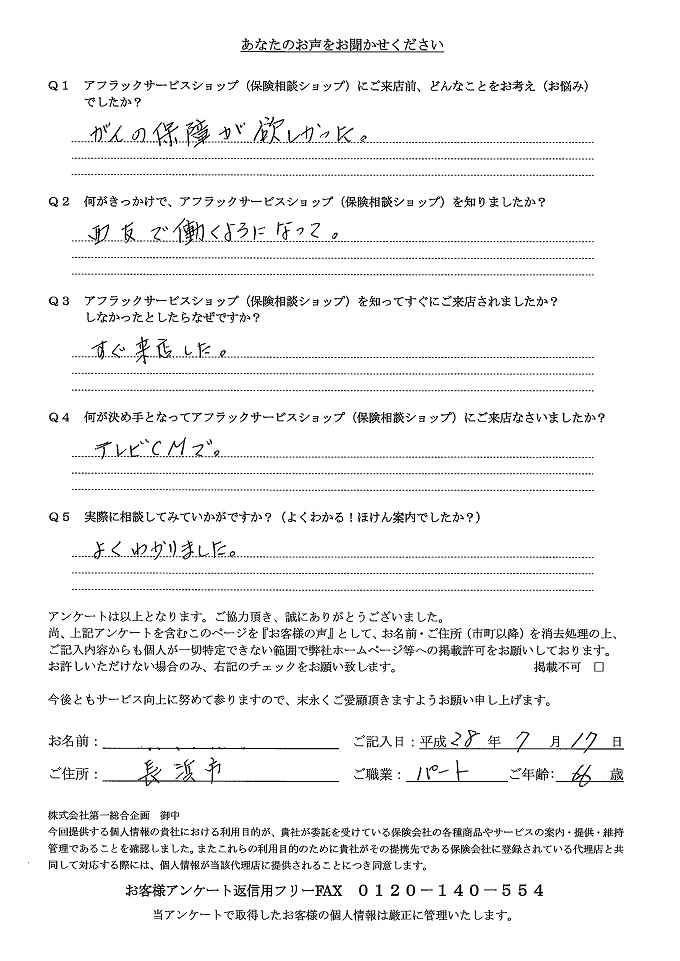 あなたのお声をお聞かせください
Q1 アフラックサービスショップ（保険相談ショップ）にご来店前、どんなことをお考え（お悩み）
でしたか？
がんの保障が欲しかった。
Q2 何がきっかけで、アフラックサービスショップ（保険相談ショップ）を知りましたか？
西友で働くようになって。
Q3 アフラックサービスショップ（保険相談ショップ）を知ってすぐにご来店されましたか？
しなかったとしたらなぜですか？
すぐ来店した。
Q4 何が決め手となってアフラックサービスショップ（保険相談ショップ）にご来店なさいましたか？
テレビCMで。
Q5 実際に相談してみていかがですか？（よくわかる！ほけん案内でしたか？）
よくわかりました。
アンケートは以上となります。ご協力頂き、誠にありがとうございました。
尚、上記アンケートを含むこのページを『お客様の声』として、お名前・ご住所（市町以降）を消去処理の上、
ご記入内容からも個人が一切特定できない範囲で弊社ホームページ等への掲載許可をお願いしております。
お許しいただけない場合のみ、右記のチェックをお願い致します。 掲載不可 □
今後ともサービス向上に努めて参りますので、末永くご愛顧頂きますようお願い申し上げます。
お名前： ご記入日：平成28年7月17日
ご住所：長浜市 ご職業：パート ご年齢：66歳
株式会社第一総合企画 御中
今回提供する個人情報の貴社における利用目的が、貴社が委託を受けている保険会社の各種商品やサービスの案内・提供・維持
管理であることを確認しました。またこれらの利用目的のために貴社がその提携先である保険会社に登録されている代理店と共
同して対応する際には、個人情報が当該代理店に提供されることにつき同意します。
お客様アンケート返信用フリーFAX 0120－140－554
当アンケートで取得したお客様の個人情報は厳正に管理いたします。